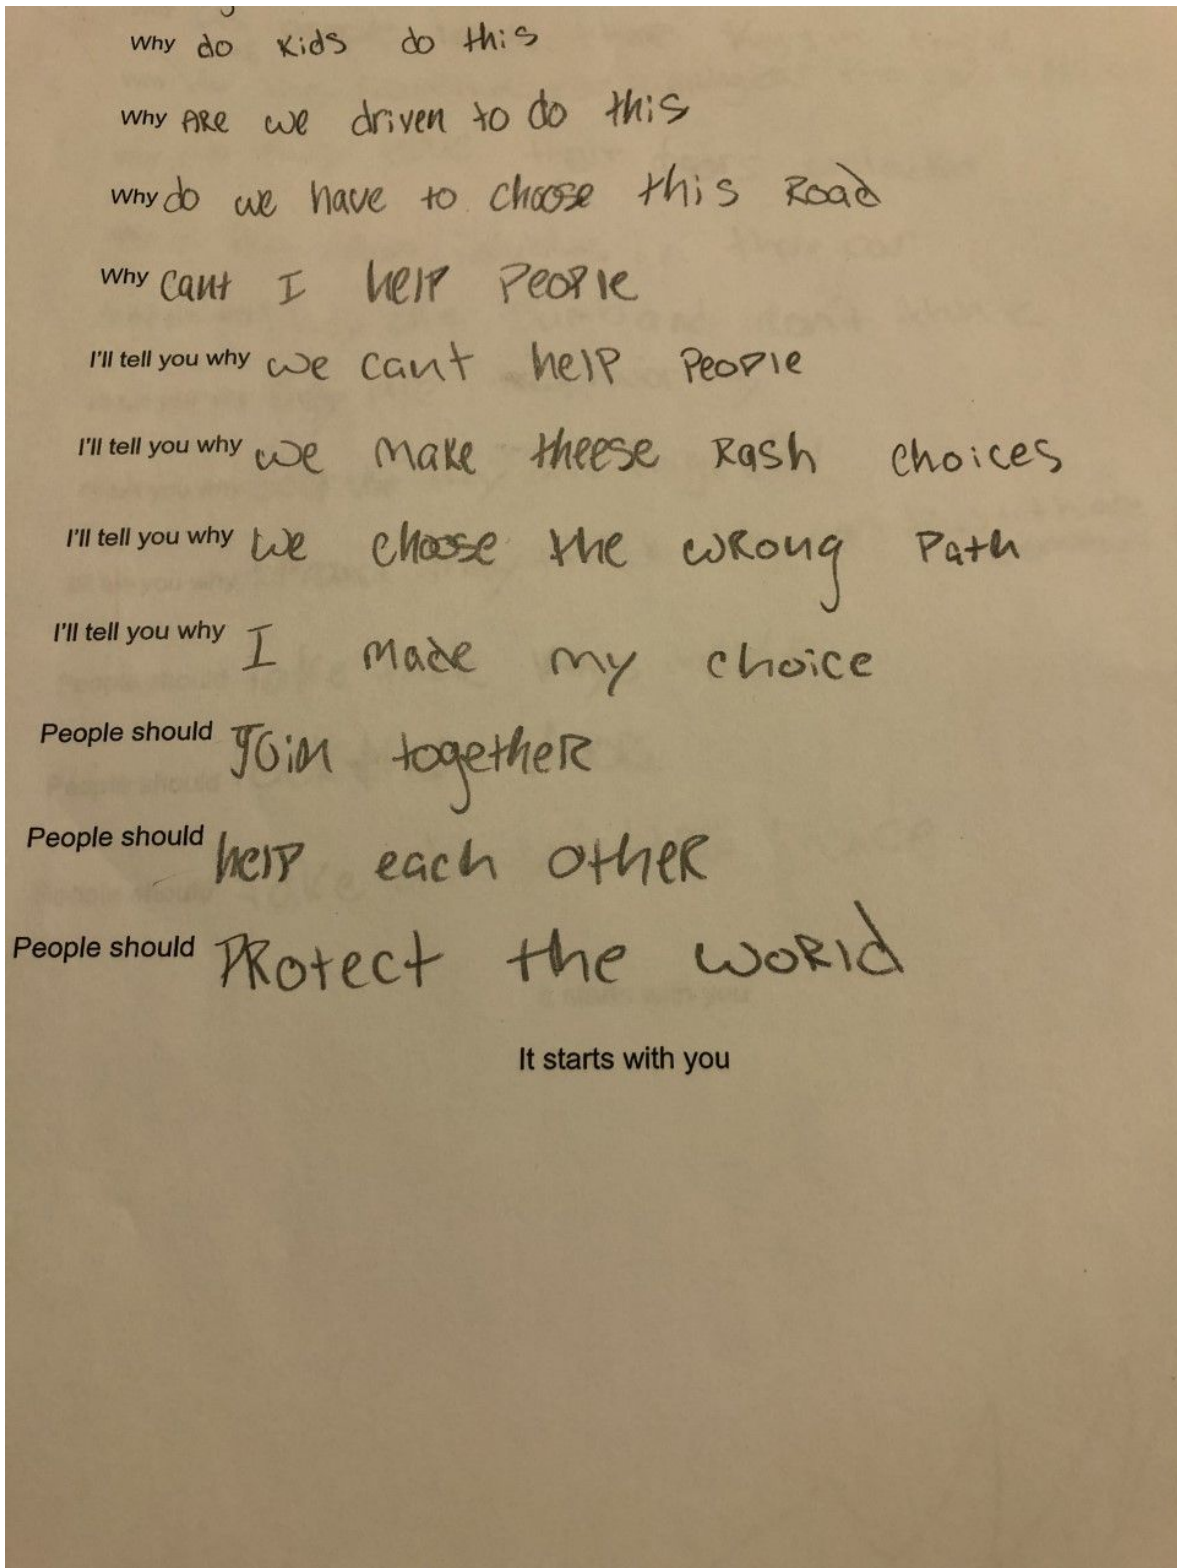 Why do kids do this
Why ARe we driven to do this
Why do we have to choose this Road
Why cant I help People
I'll tell you why we cant help People
I'll tell you why we make theese Rash choices
I'll tell you why we choose the wRong Path
I'll tell you why I made my choice
People should Join togetheR
People should help each otheR
People should PRotect the woRld
It starts with you